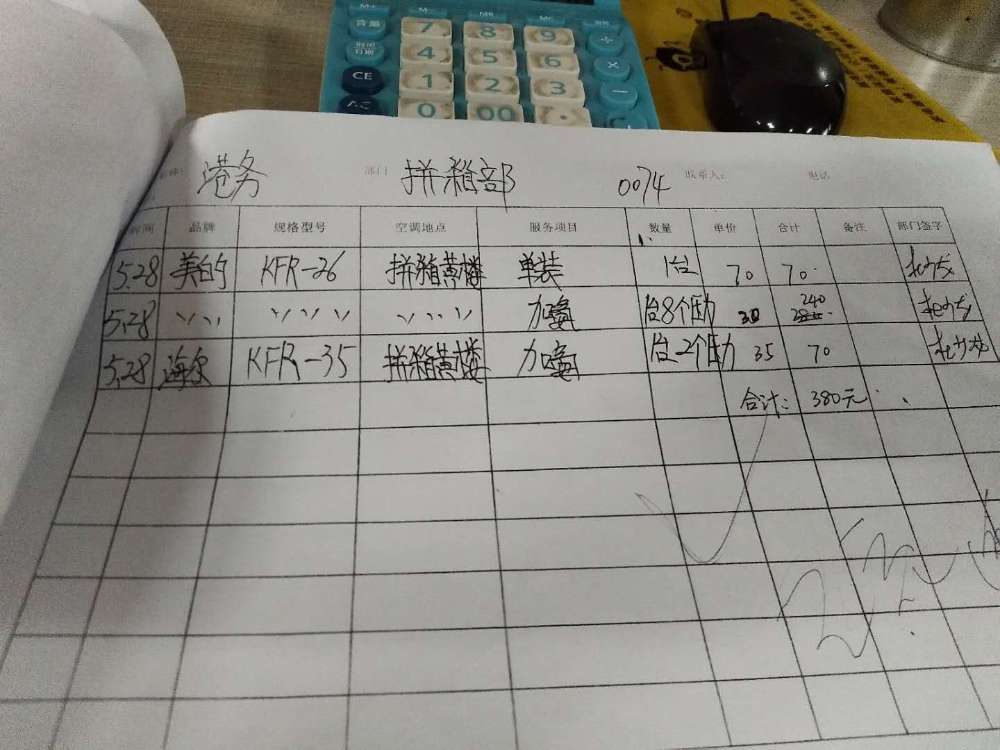 音量
7 8 9 ÷
4 5 6 ×
CE 1 2 3 −
0 00 ·
港务 部门 拼箱部 0074 联系人: 电话
时间 品牌 规格型号 空调地点 服务项目 数量 单价 合计 备注 部门签字
5.28 美的 KFR-26 拼箱 单装 1台 70 70
5.28 〃 〃 〃 加氟 1台8个压力 30 240
5.28 海尔 KFR-35 拼箱 加氟 1台2个压力 35 70
合计: 380元